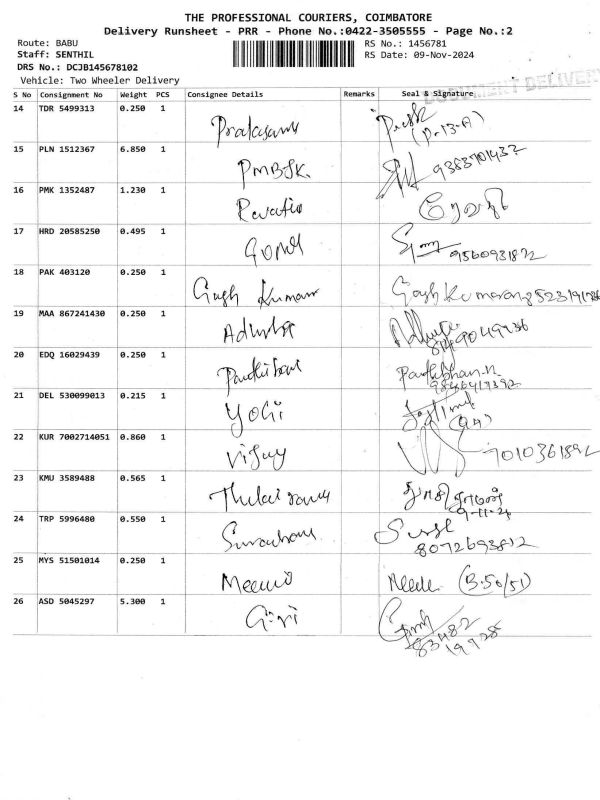 THE PROFESSIONAL COURIERS, COIMBATORE
Delivery Runsheet - PRR - Phone No.:0422-3505555 - Page No.:2
Route: BABU RS No.: 1456781
Staff: SENTHIL RS Date: 09-Nov-2024
DRS No.: DCJB145678102
Vehicle: Two Wheeler Delivery
DOCUMENT DELIVERY
S No Consignment No Weight PCS Consignee Details Remarks Seal & Signature
14 TDR 5499313 0.250 1
(P-13-A)
15 PLN 1512367 6.850 1 PMBJK. 9383701437
16 PMK 1352487 1.230 1 Revathi
17 HRD 20585250 0.495 1 9560931872
18 PAK 403120 0.250 1 Kumaran
19 MAA 867241430 0.250 1
20 EDQ 16029439 0.250 1
21 DEL 530099013 0.215 1 YOGi
22 KUR 7002714051 0.860 1 Vijay
23 KMU 3589488 0.565 1
9-11-24
24 TRP 5996480 0.550 1
8072693812
25 MYS 51501014 0.250 1 (B.50/51)
26 ASD 5045297 5.300 1 Giri
83482
19728